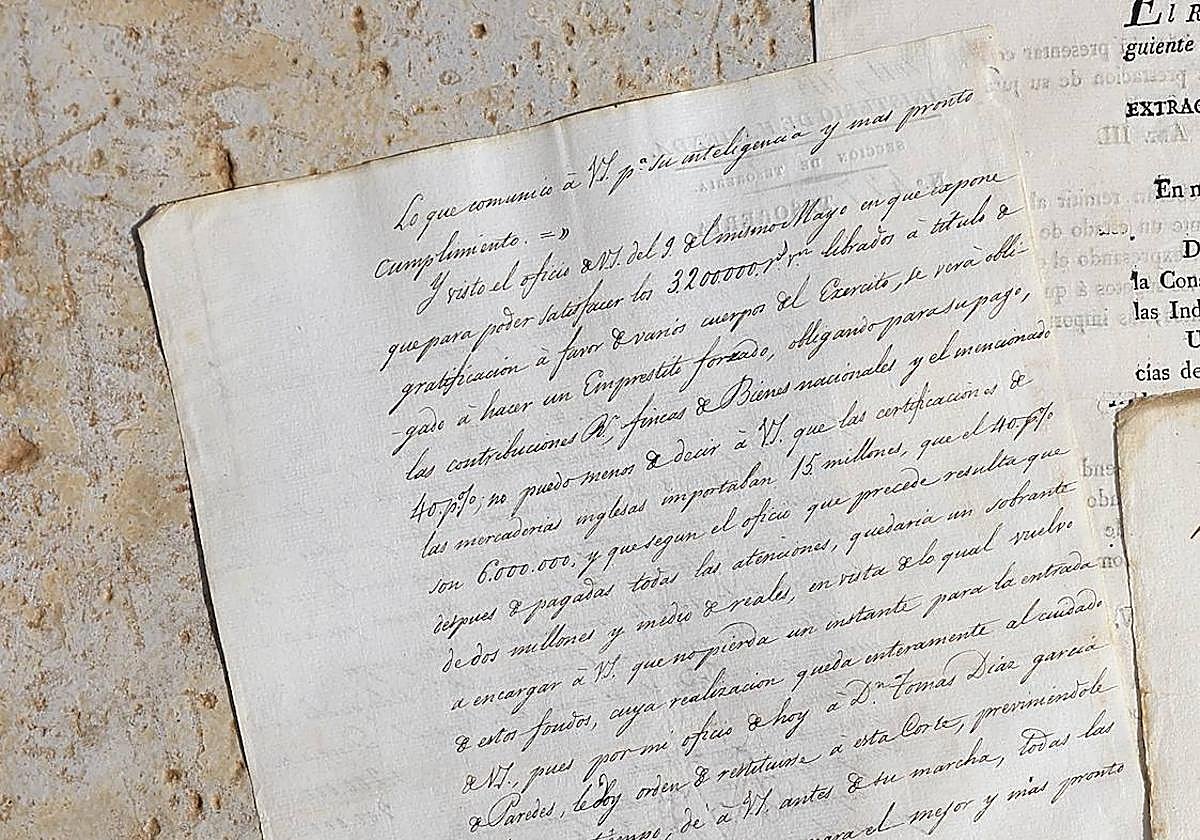 Lo que comunico à VS. pª su inteligencia y mas pronto
cumplimiento. =»
Y visto el oficio de VS. del 9. del mismo Mayo en que expone
que para poder satisfacer los 3.200.000. rˢ vⁿ librados à titulo de
gratificacion à favor de varios cuerpos del Exercito, se verà obli-
-gado à hacer un Emprestito forzado, obligando para su pago,
las contribuciones Rˢ, fincas de Bienes nacionales y el mencionado
40. p%; no puedo menos de decir à VS. que las certificaciones de
las mercaderias inglesas importaban 15 millones, que el 40. p%
son 6.000.000, y que segun el oficio que precede resulta que
despues de pagadas todas las atenciones, quedaria un sobrante
de dos millones y medio de reales, en vista de lo qual vuelvo
a encargar à VS. que no pierda un instante para la entrada
de estos fondos, cuya realizacion queda enteramente al cuidado
de VS., pues por mi oficio de hoy à Dⁿ Tomas Diaz garcia
de Paredes, le doy orden de restituirse à esta Corte, previniendole
tiempo, dé à VS. antes de su marcha, todas las
para el mejor y mas pronto
El R
guiente
EXTRAC
En n
D
la Cons
las Ind
U
cías de